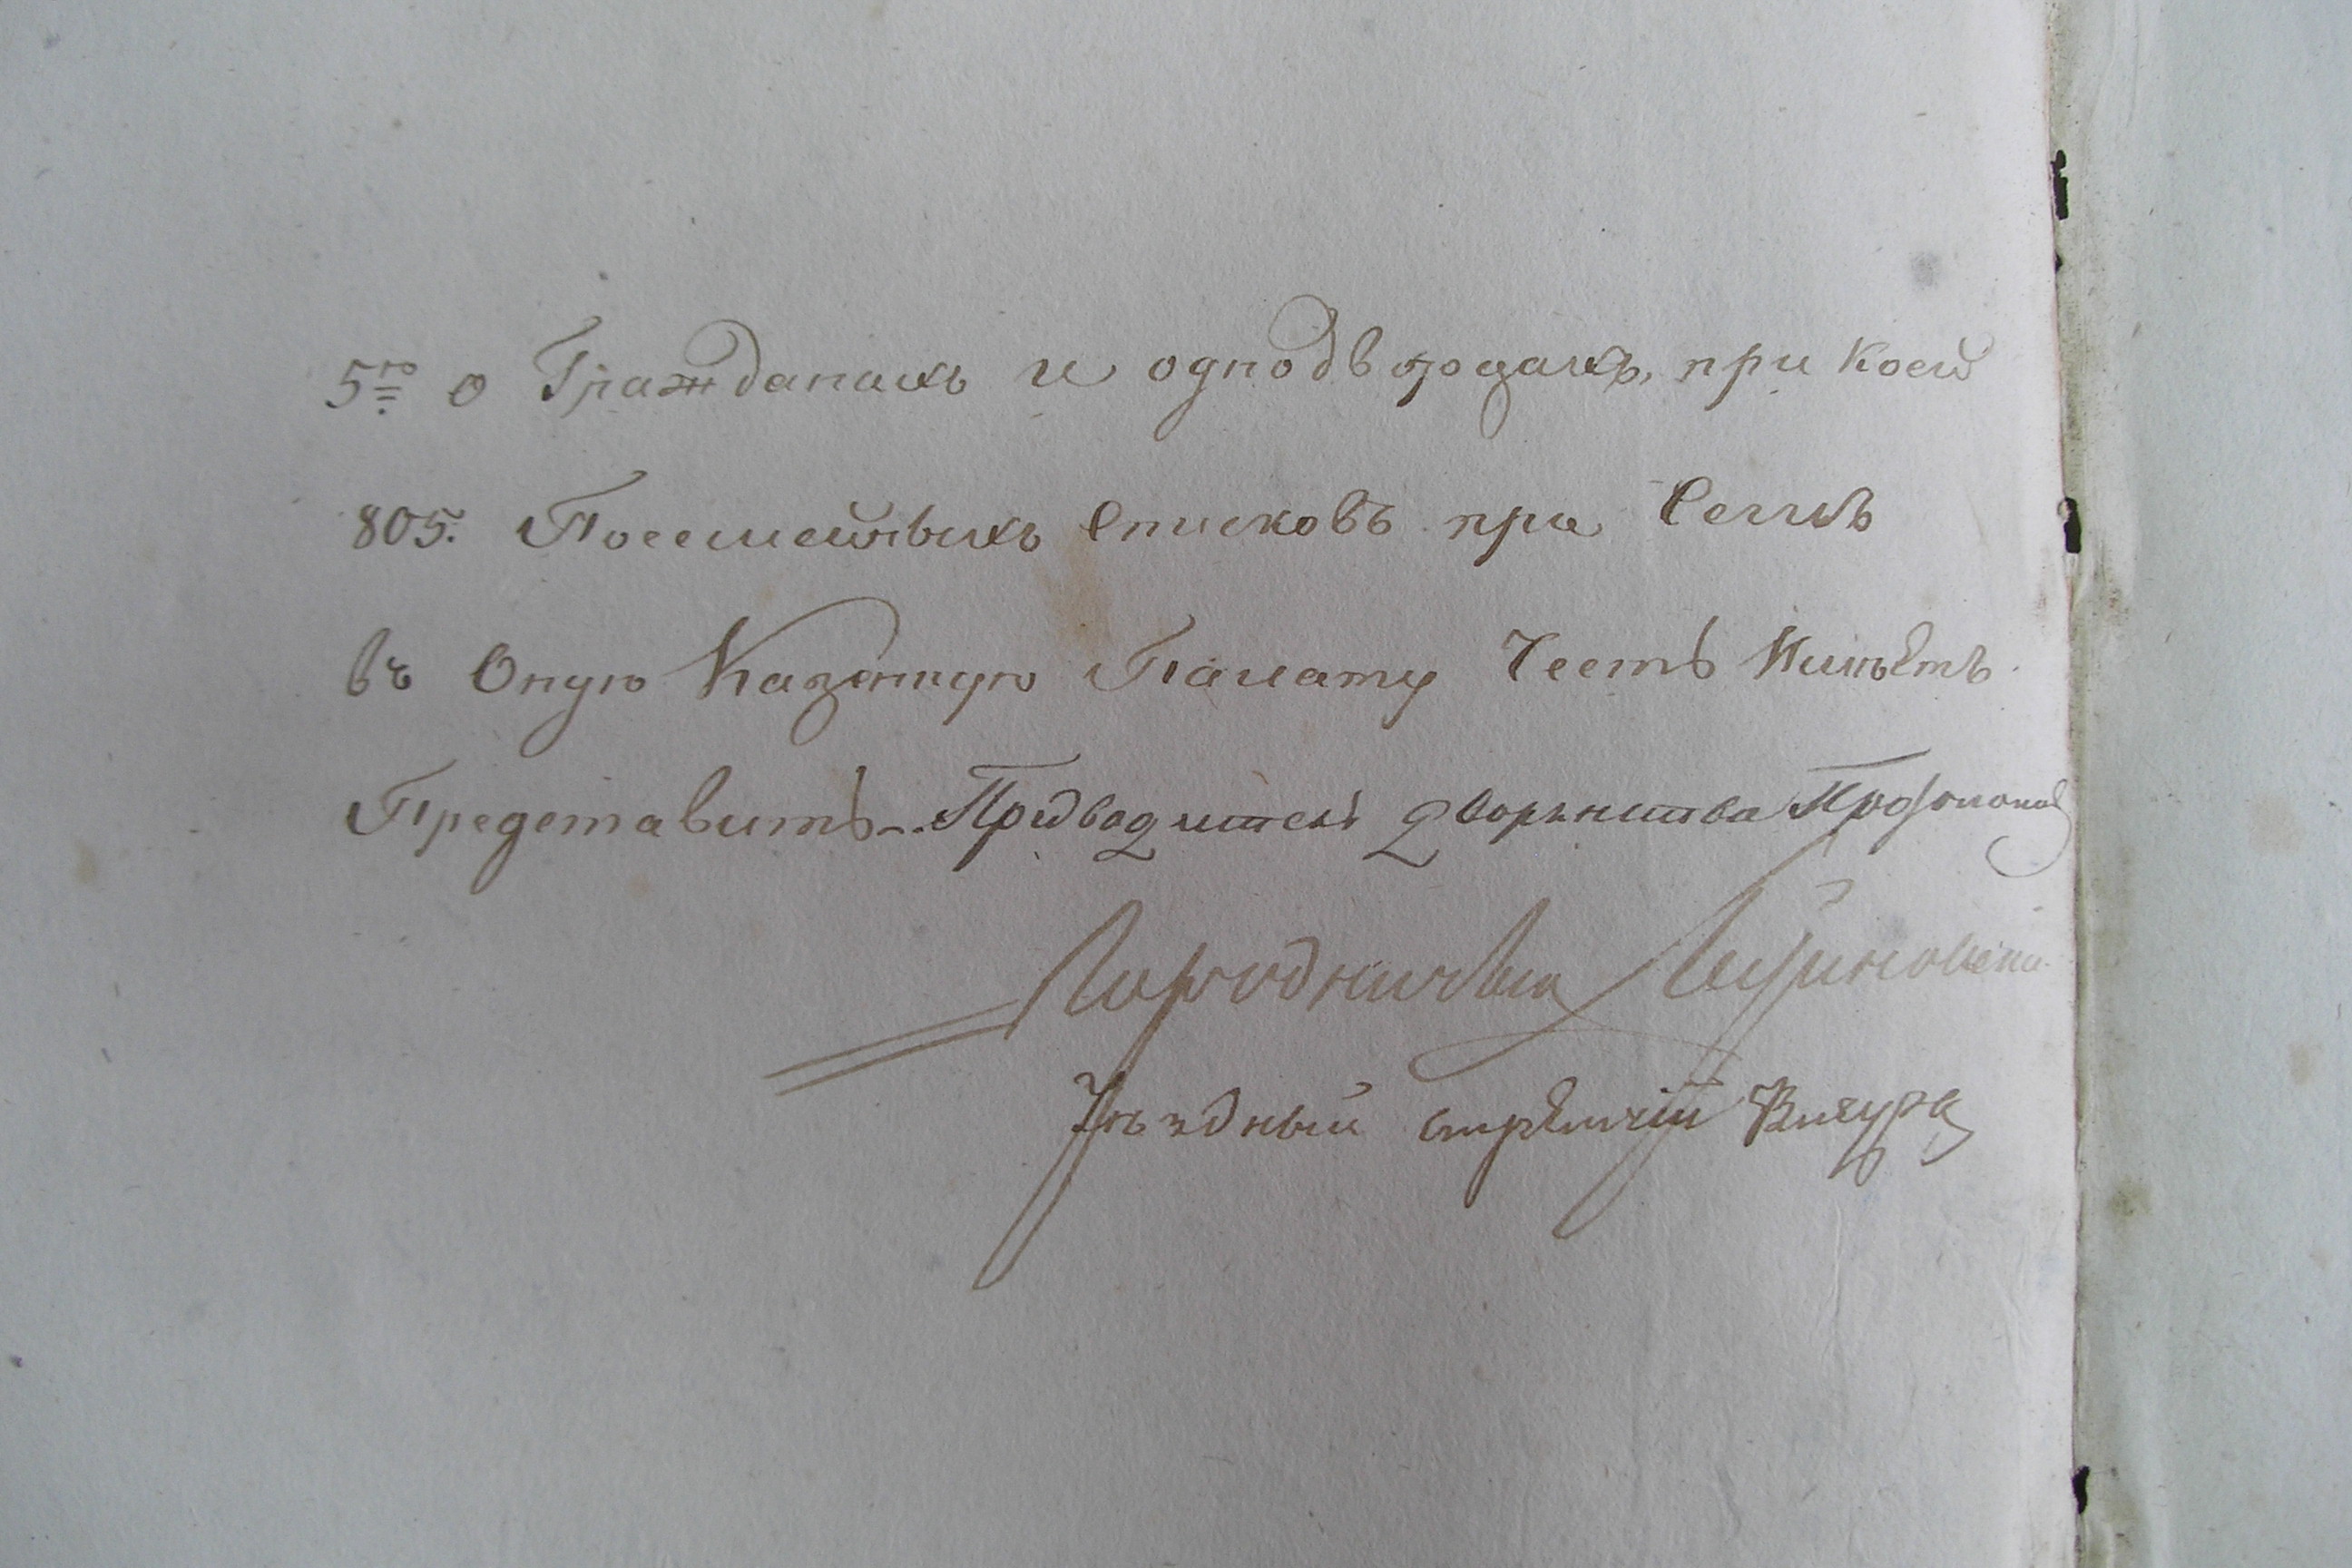 5го о Гражданахъ и однодворцахъ, при коей
805. Посемейныхъ Списковъ при Семъ
въ Оную Казенную Палату Честь Имѣетъ
Представить. Предводитель дворянства
Городничій
Уѣздный стряпчій Вигура